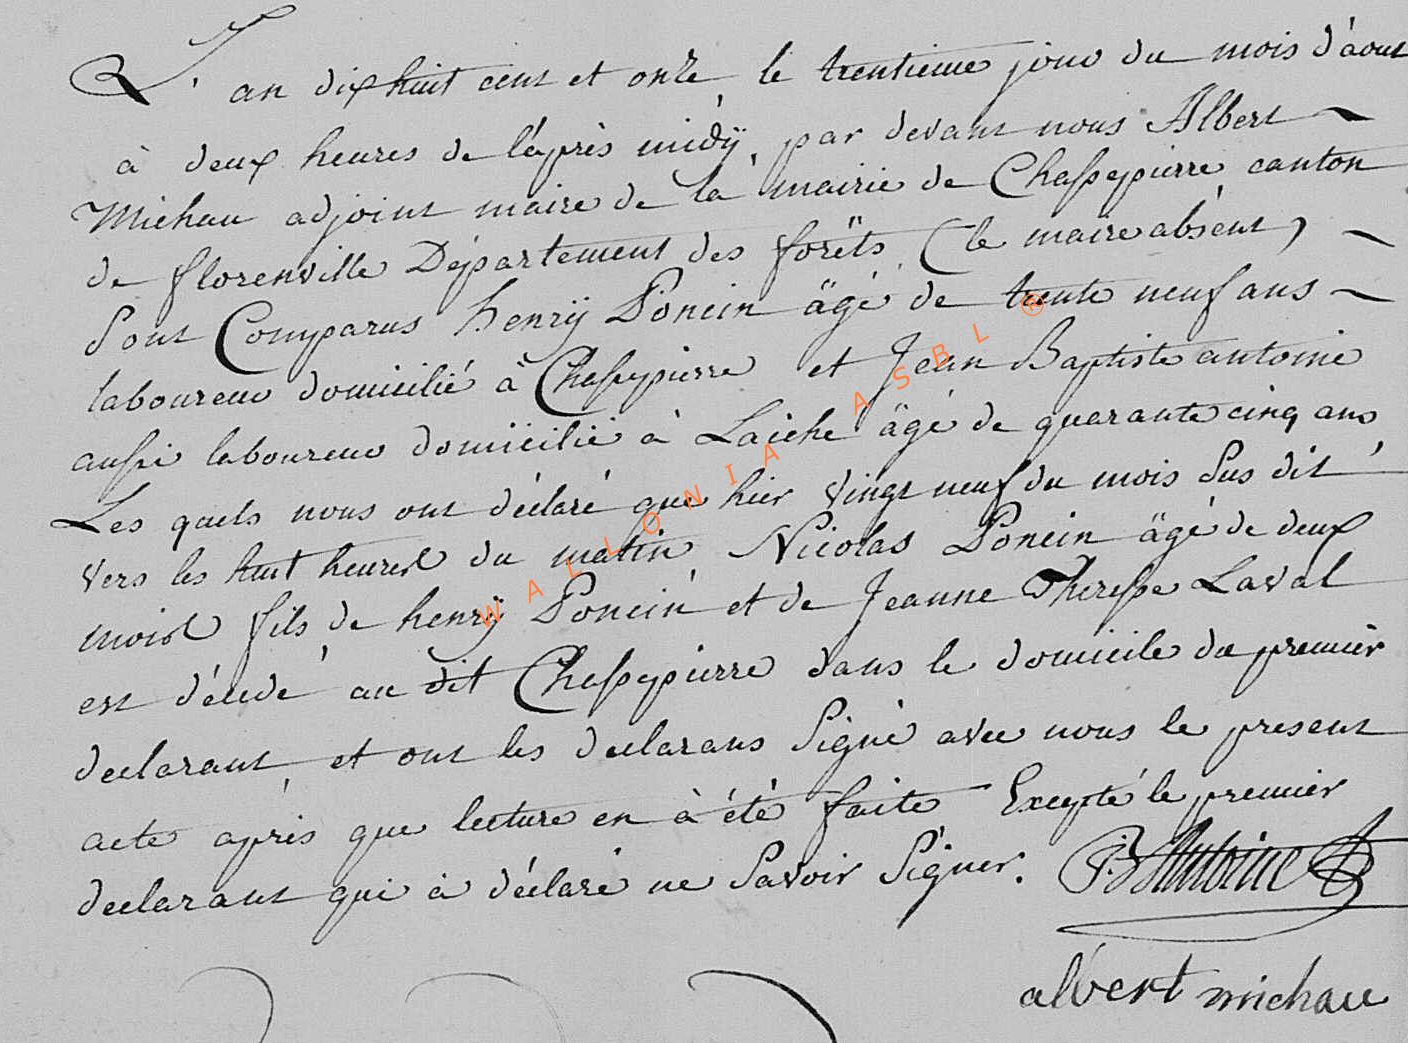 L'an dix huit cent et onze le trentieme jour du mois d'aout
à deux heures de l'après midÿ, par devant nous Albert
Michau adjoint maire de la mairie de Chassepierre canton
de florenville Département des forêts (le maire absent)
Sont Comparus henrÿ Poncin âgé de trente neuf ans
laboureur domicilié à Chassepierre et Jean Baptiste antoine
aussi laboureur domicilié à Laiche âgé de quarante cinq ans
Les quels nous ont déclaré que hier vingt neuf du mois Sus dit
vers les huit heures du matin Nicolas Poncin âgé de deux
mois fils de henrÿ Poncin et de Jeanne Theresse Laval
est décédé au dit Chassepierre dans le domicile du premier
declarant, et ont les declarans Signé avec nous le present
acte après que lecture en à été faite Excepté le premier
declarant qui à déclaré ne Savoir Signer. JB Antoine
albert michau
WALLONIA ASBL ®